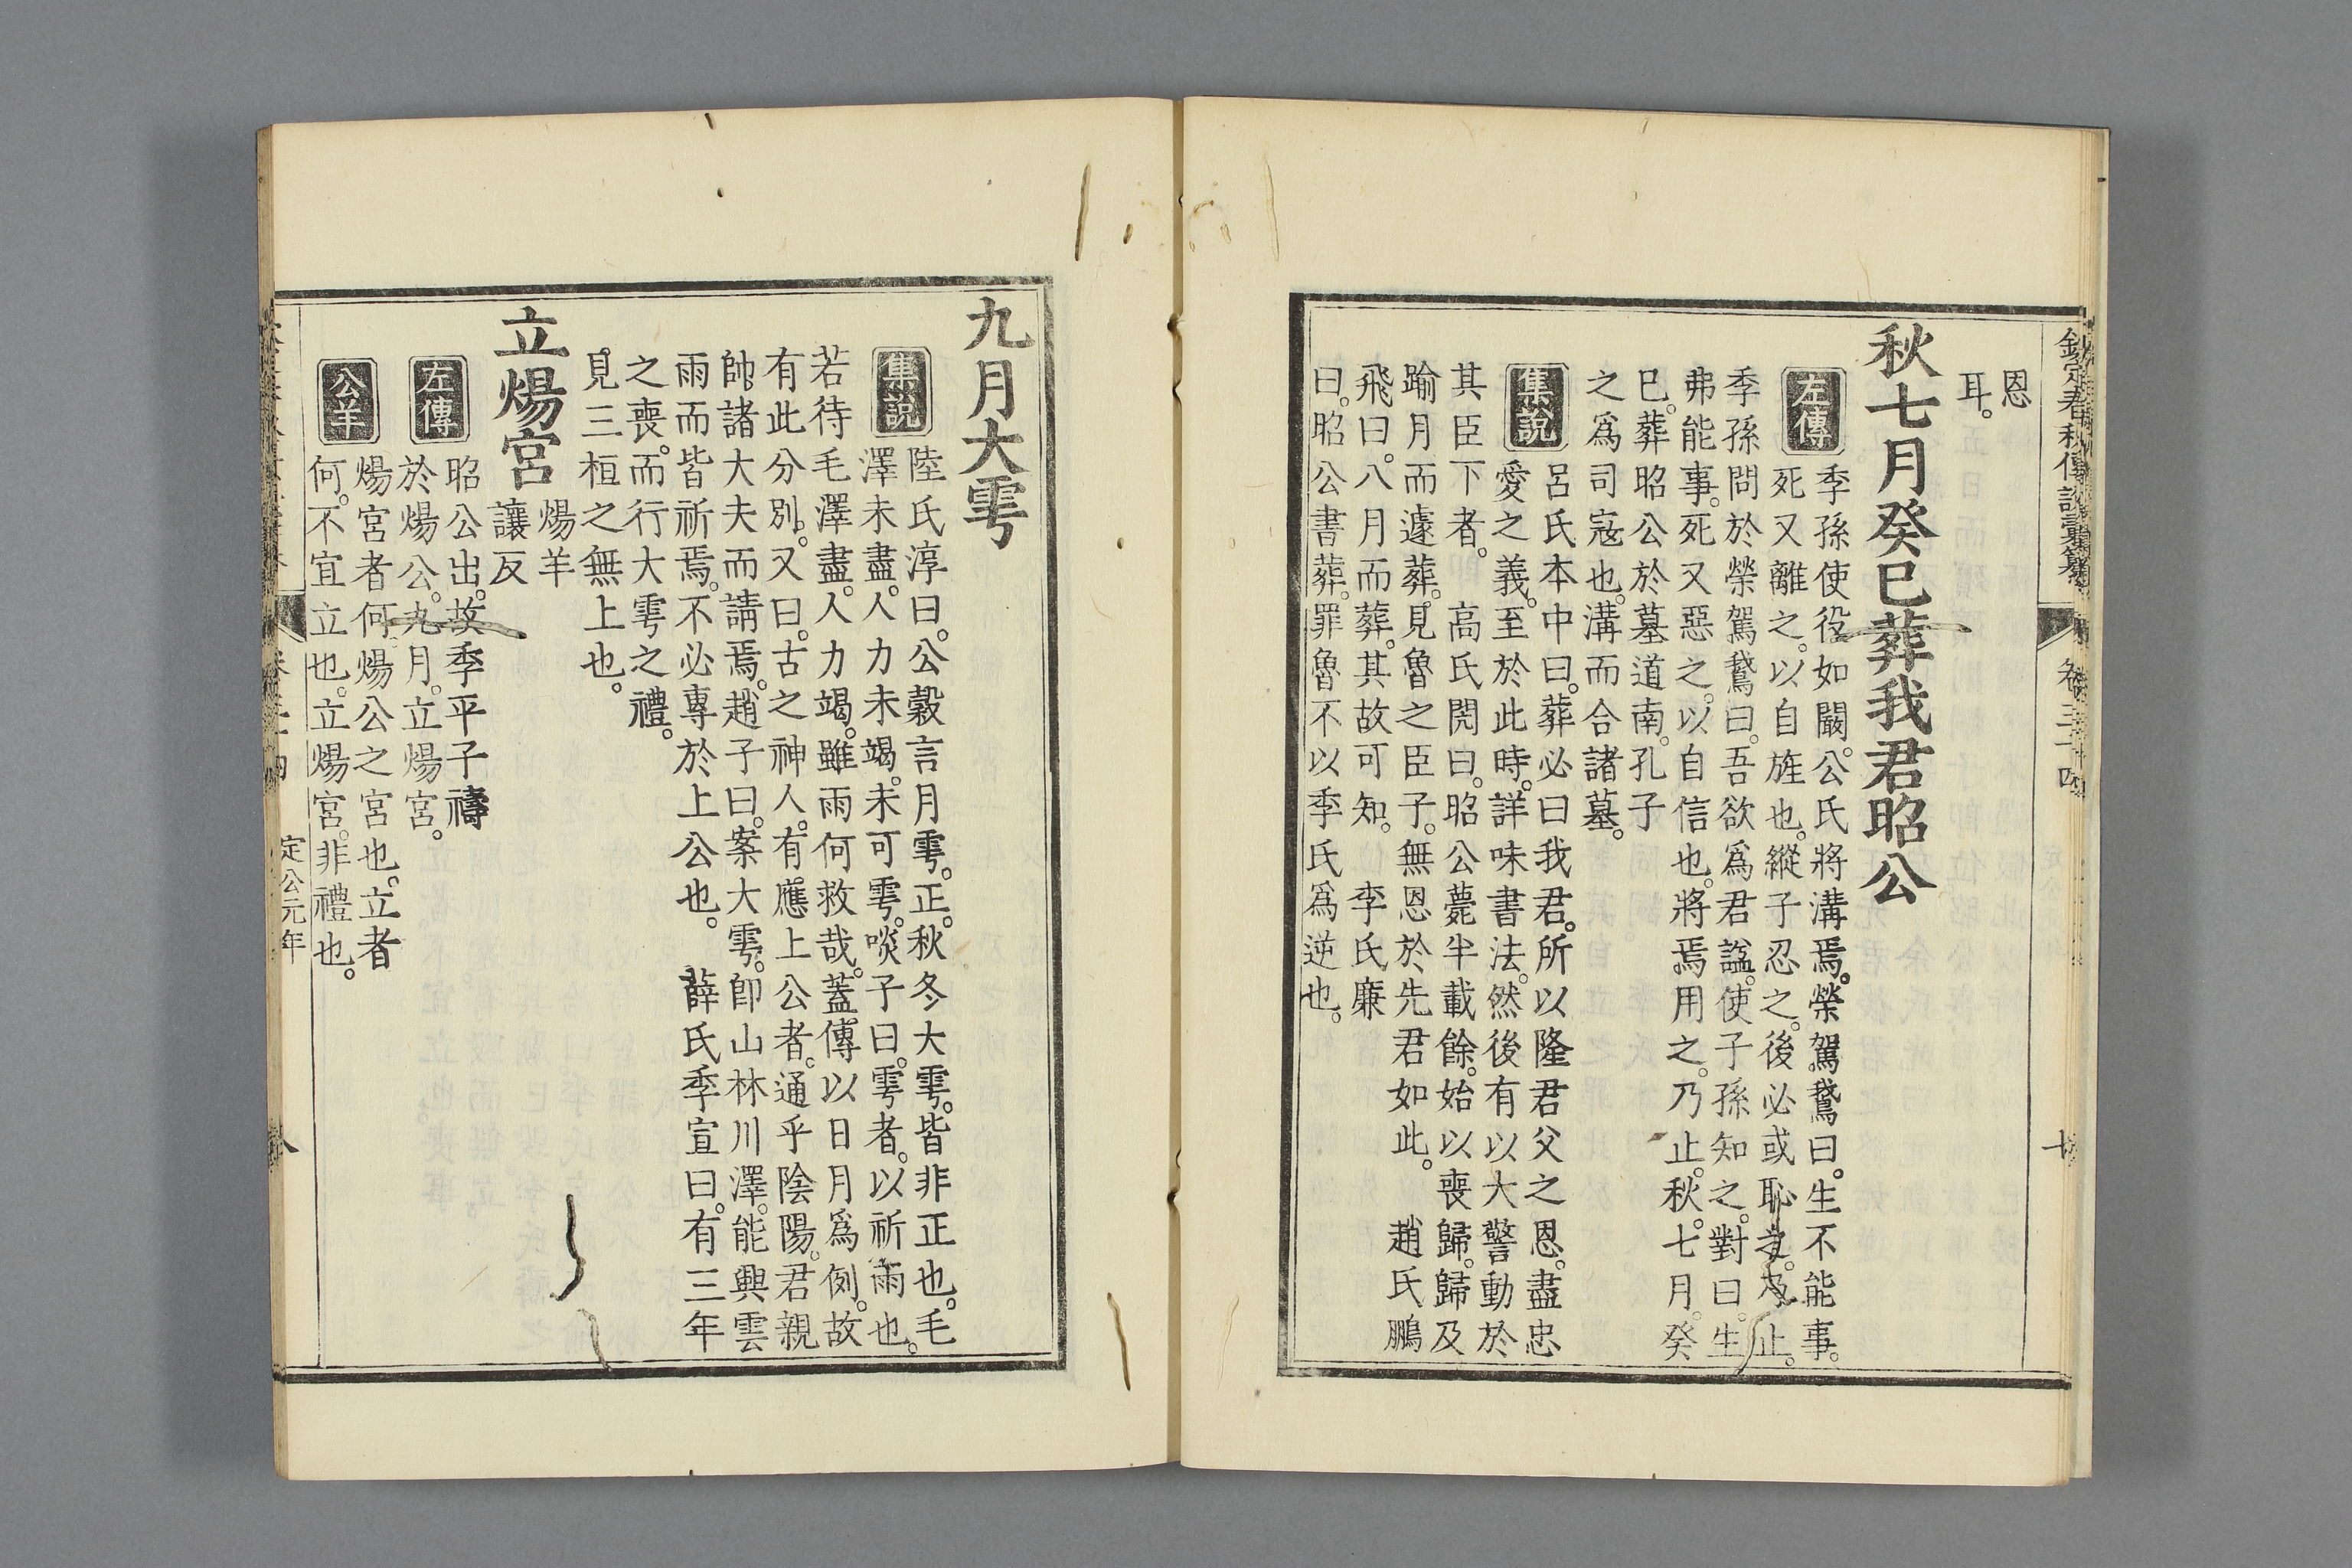 欽定春秋傳說彙纂 卷三十四
恩
耳。
秋七月癸巳葬我君昭公
左傳 季孫使役如闞。公氏將溝焉。榮駕鵞曰。生不能事。
死又離之。以自旌也。縱子忍之。後必或恥之。乃止。
季孫問於榮駕鵞曰。吾欲爲君謚。使子孫知之。對曰。生
弗能事。死又惡之。以自信也。將焉用之。乃止。秋。七月。癸
巳。葬昭公於墓道南。孔子
之爲司寇也。溝而合諸墓。
集說 呂氏本中曰。葬必曰我君。所以隆君父之恩。盡忠
愛之義。至於此時。詳味書法。然後有以大警動於
其臣下者。 高氏閌曰。昭公薨半載餘。始以喪歸。歸及
踰月而遽葬。見魯之臣子。無恩於先君如此。 趙氏鵬
飛曰。八月而葬。其故可知。 李氏廉
曰。昭公書葬。罪魯不以季氏爲逆也。
九月大雩
集說 陸氏淳曰。公穀言月雩。正。秋冬大雩。皆非正也。毛
澤未盡。人力未竭。未可雩。啖子曰。雩者。以祈雨也。
若待毛澤盡。人力竭。雖雨何救哉。蓋傳以日月爲例。故
有此分別。又曰。古之神人。有應上公者。通乎陰陽。君親
帥諸大夫而請焉。趙子曰。案大雩。卽山林川澤。能興雲
雨而皆祈焉。不必專於上公也。 薛氏季宣曰。有三年
之喪。而行大雩之禮。
見三桓之無上也。
立煬宮 煬羊
讓反
左傳 昭公出。故季平子禱
於煬公。九月。立煬宮。
公羊 煬宮者何。煬公之宮也。立者
何。不宜立也。立煬宮。非禮也。
定公元年